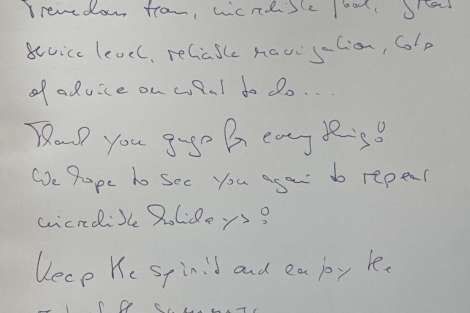 Tremendous team, incredible food, great
service level, reliable navigation, lots
of advice on what to do...
Thank you guys for everything!
We hope to see you again to repeat
incredible holidays!
Keep the spirit and enjoy the
summer